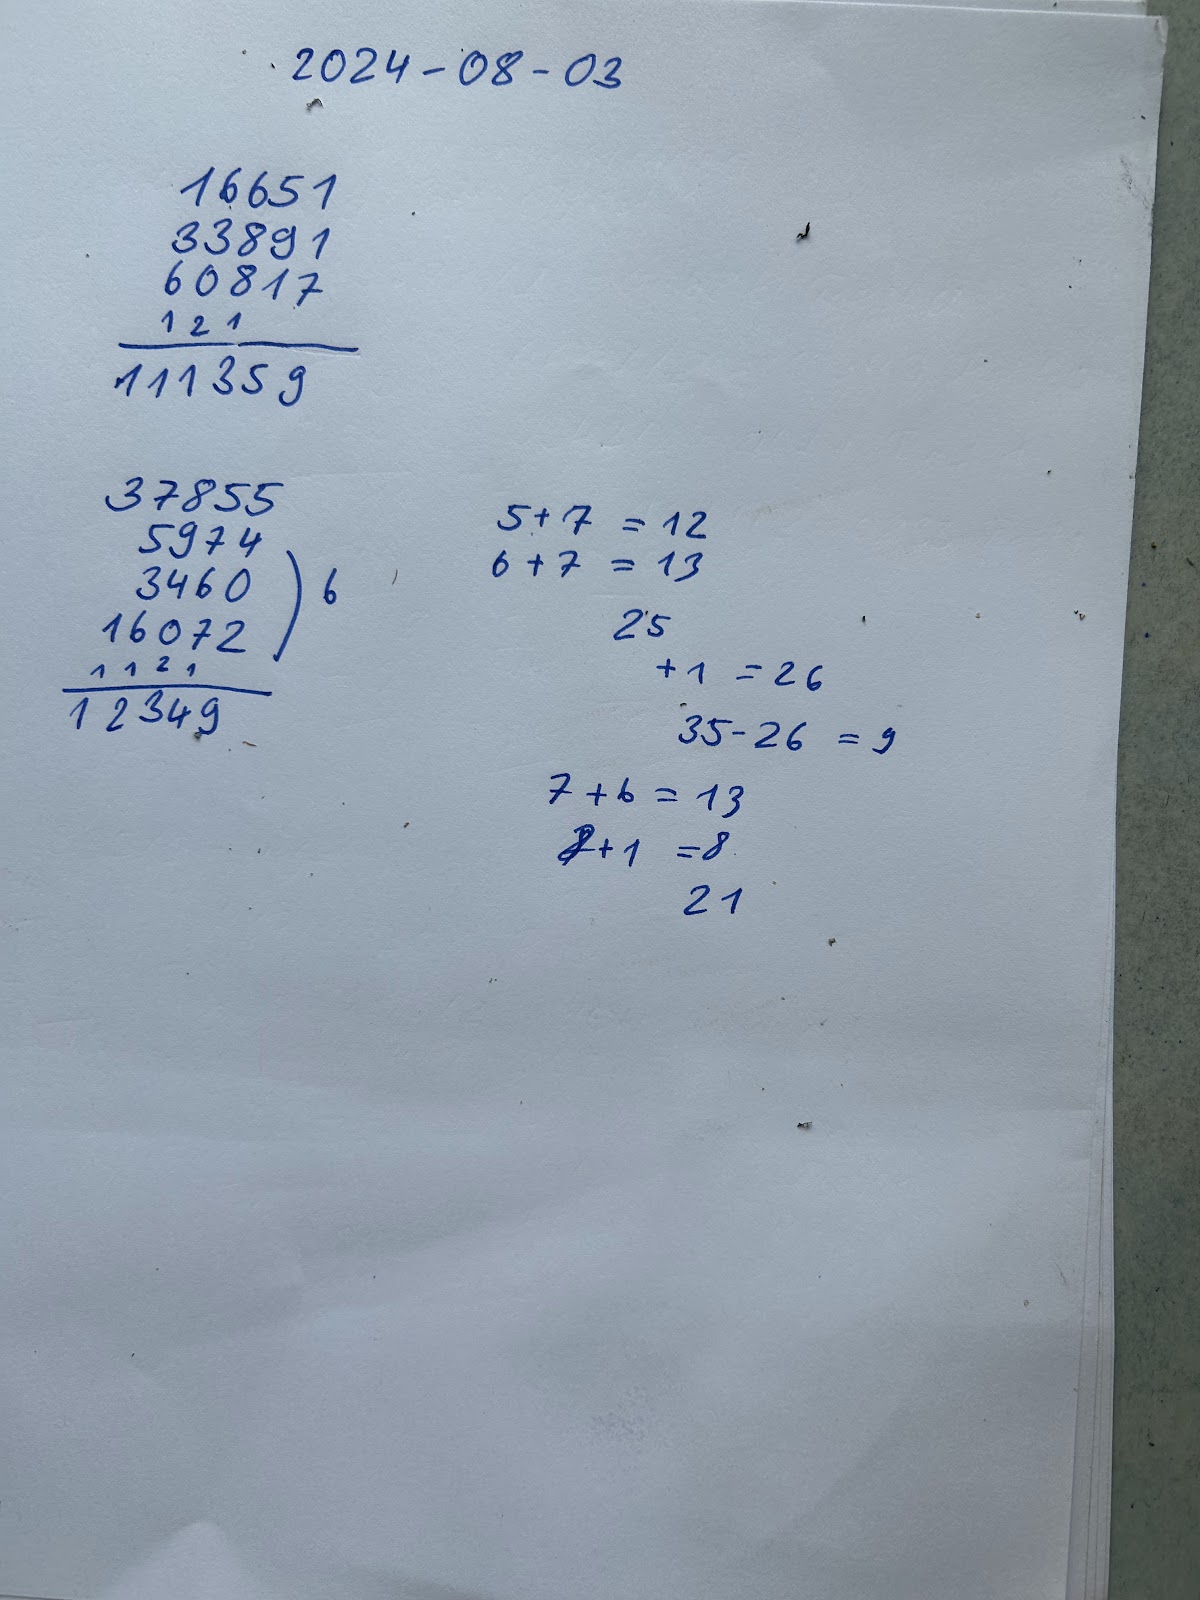 2024-08-03
16651
33891
60817
1 2 1
111359
37855
5974
3460
16072
) 6
1 1 2 1
12349
5+7 = 12
6+7 = 13
25
+1 = 26
35-26 = 9
7+6 = 13
+1 = 8
21